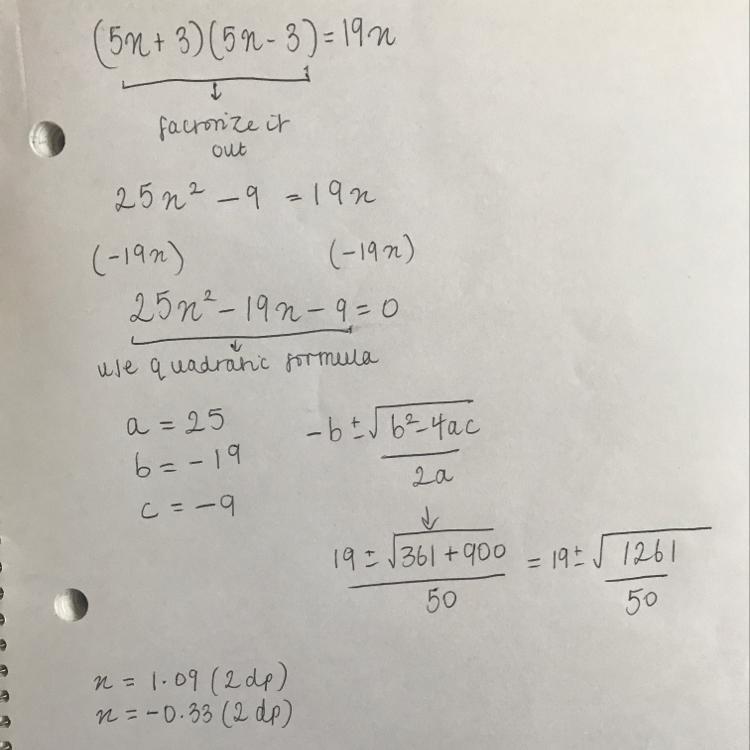 (5x + 3)(5x - 3) = 19x
↓
facronize it
out
25x² - 9 = 19x
(-19x) (-19x)
25x² - 19x - 9 = 0
↓
use quadratic formula
a = 25
b = -19
c = -9
-b ± √b² - 4ac
2a
↓
19 ± √361 + 900 = 19 ± √1261
50 50
x = 1.09 (2 dp)
x = -0.33 (2 dp)